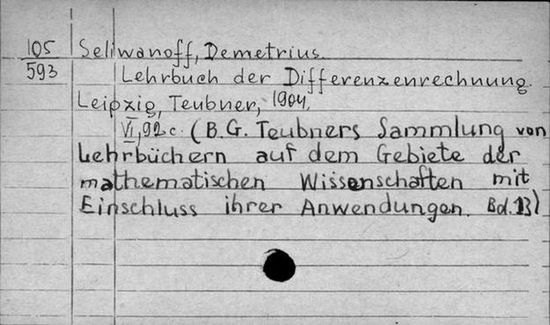 105
593
Seliwanoff, Demetrius.
Lehrbuch der Differenzenrechnung.
Leipzig, Teubner, 1904.
VI, 92 c. (B. G. Teubners Sammlung von
Lehrbüchern auf dem Gebiete der
mathematischen Wissenschaften mit
Einschluss ihrer Anwendungen. Bd. 13)